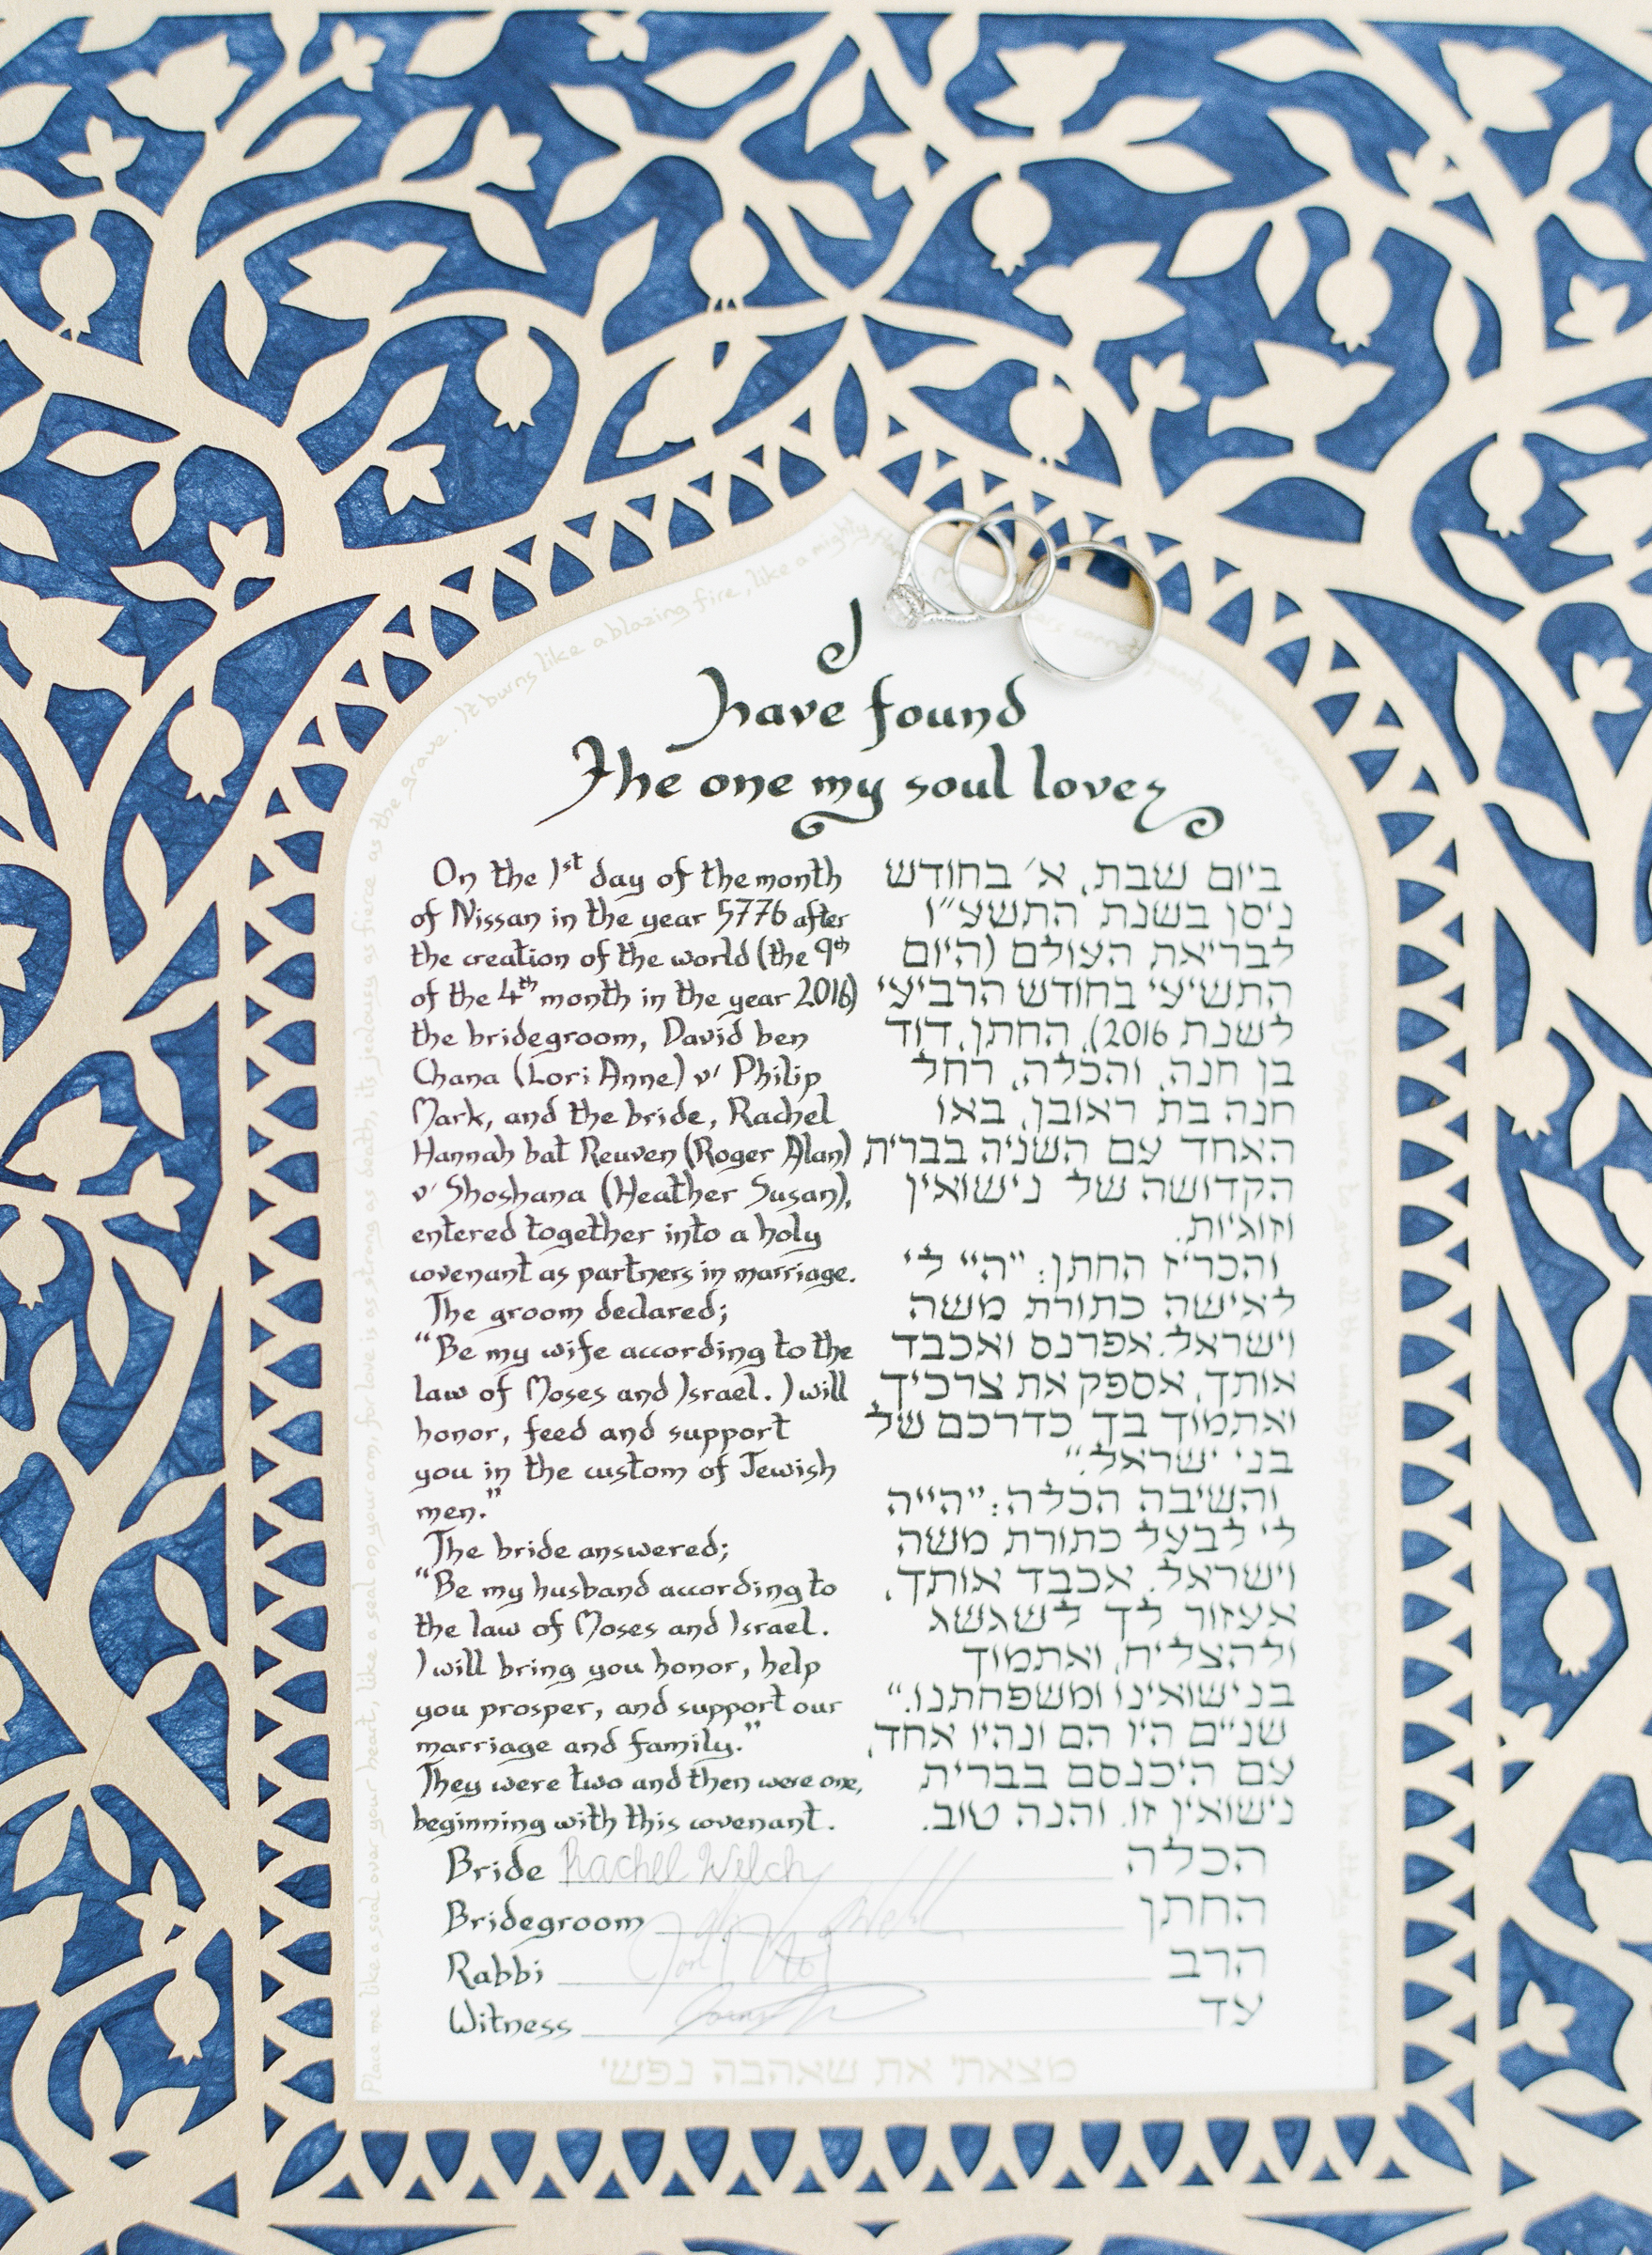 I
have found
The one my soul loves
On the 1st day of the month
of Nissan in the year 5776 after
the creation of the world (the 9th
of the 4th month in the year 2016)
the bridegroom, David ben
Chana (Lori Anne) v' Philip
Mark, and the bride, Rachel
Hannah bat Reuven (Roger Alan)
v' Shoshana (Heather Susan),
entered together into a holy
covenant as partners in marriage.
The groom declared;
"Be my wife according to the
law of Moses and Israel. I will
honor, feed and support
you in the custom of Jewish
men."
The bride answered;
"Be my husband according to
the law of Moses and Israel.
I will bring you honor, help
you prosper, and support our
marriage and family."
They were two and then were one,
beginning with this covenant.
ביום שבת, א' בחודש
ניסן בשנת התשע"ו
לבריאת העולם (היום
התשיעי בחודש הרביעי
לשנת 2016), החתן, דוד
בן חנה, והכלה, רחל
חנה בת ראובן, באו
האחד עם השניה בברית
הקדושה של נישואין
וזוגיות.
והכריז החתן: "היי לי
לאישה כתורת משה
וישראל. אפרנס ואכבד
אותך, אספק את צרכיך,
ואתמוך בך כדרכם של
בני ישראל."
והשיבה הכלה: "היייה
לי לבעל כתורת משה
וישראל. אכבד אותך,
אעזור לך לשגשג
ולהצליח, ואתמוך
בנישואינו ומשפחתנו."
שניים היו הם ונהיו אחד,
עם היכנסם בברית
נישואין זו. והנה טוב.
Bride Rachel Welch הכלה
Bridegroom החתן
Rabbi הרב
Witness עד
מצאתי את שאהבה נפשי
Place me like a seal over your heart, like a seal on your arm, for love is as strong as death, its jealousy as fierce as the grave. It burns like a blazing fire, like a mighty
quench love, rivers cannot